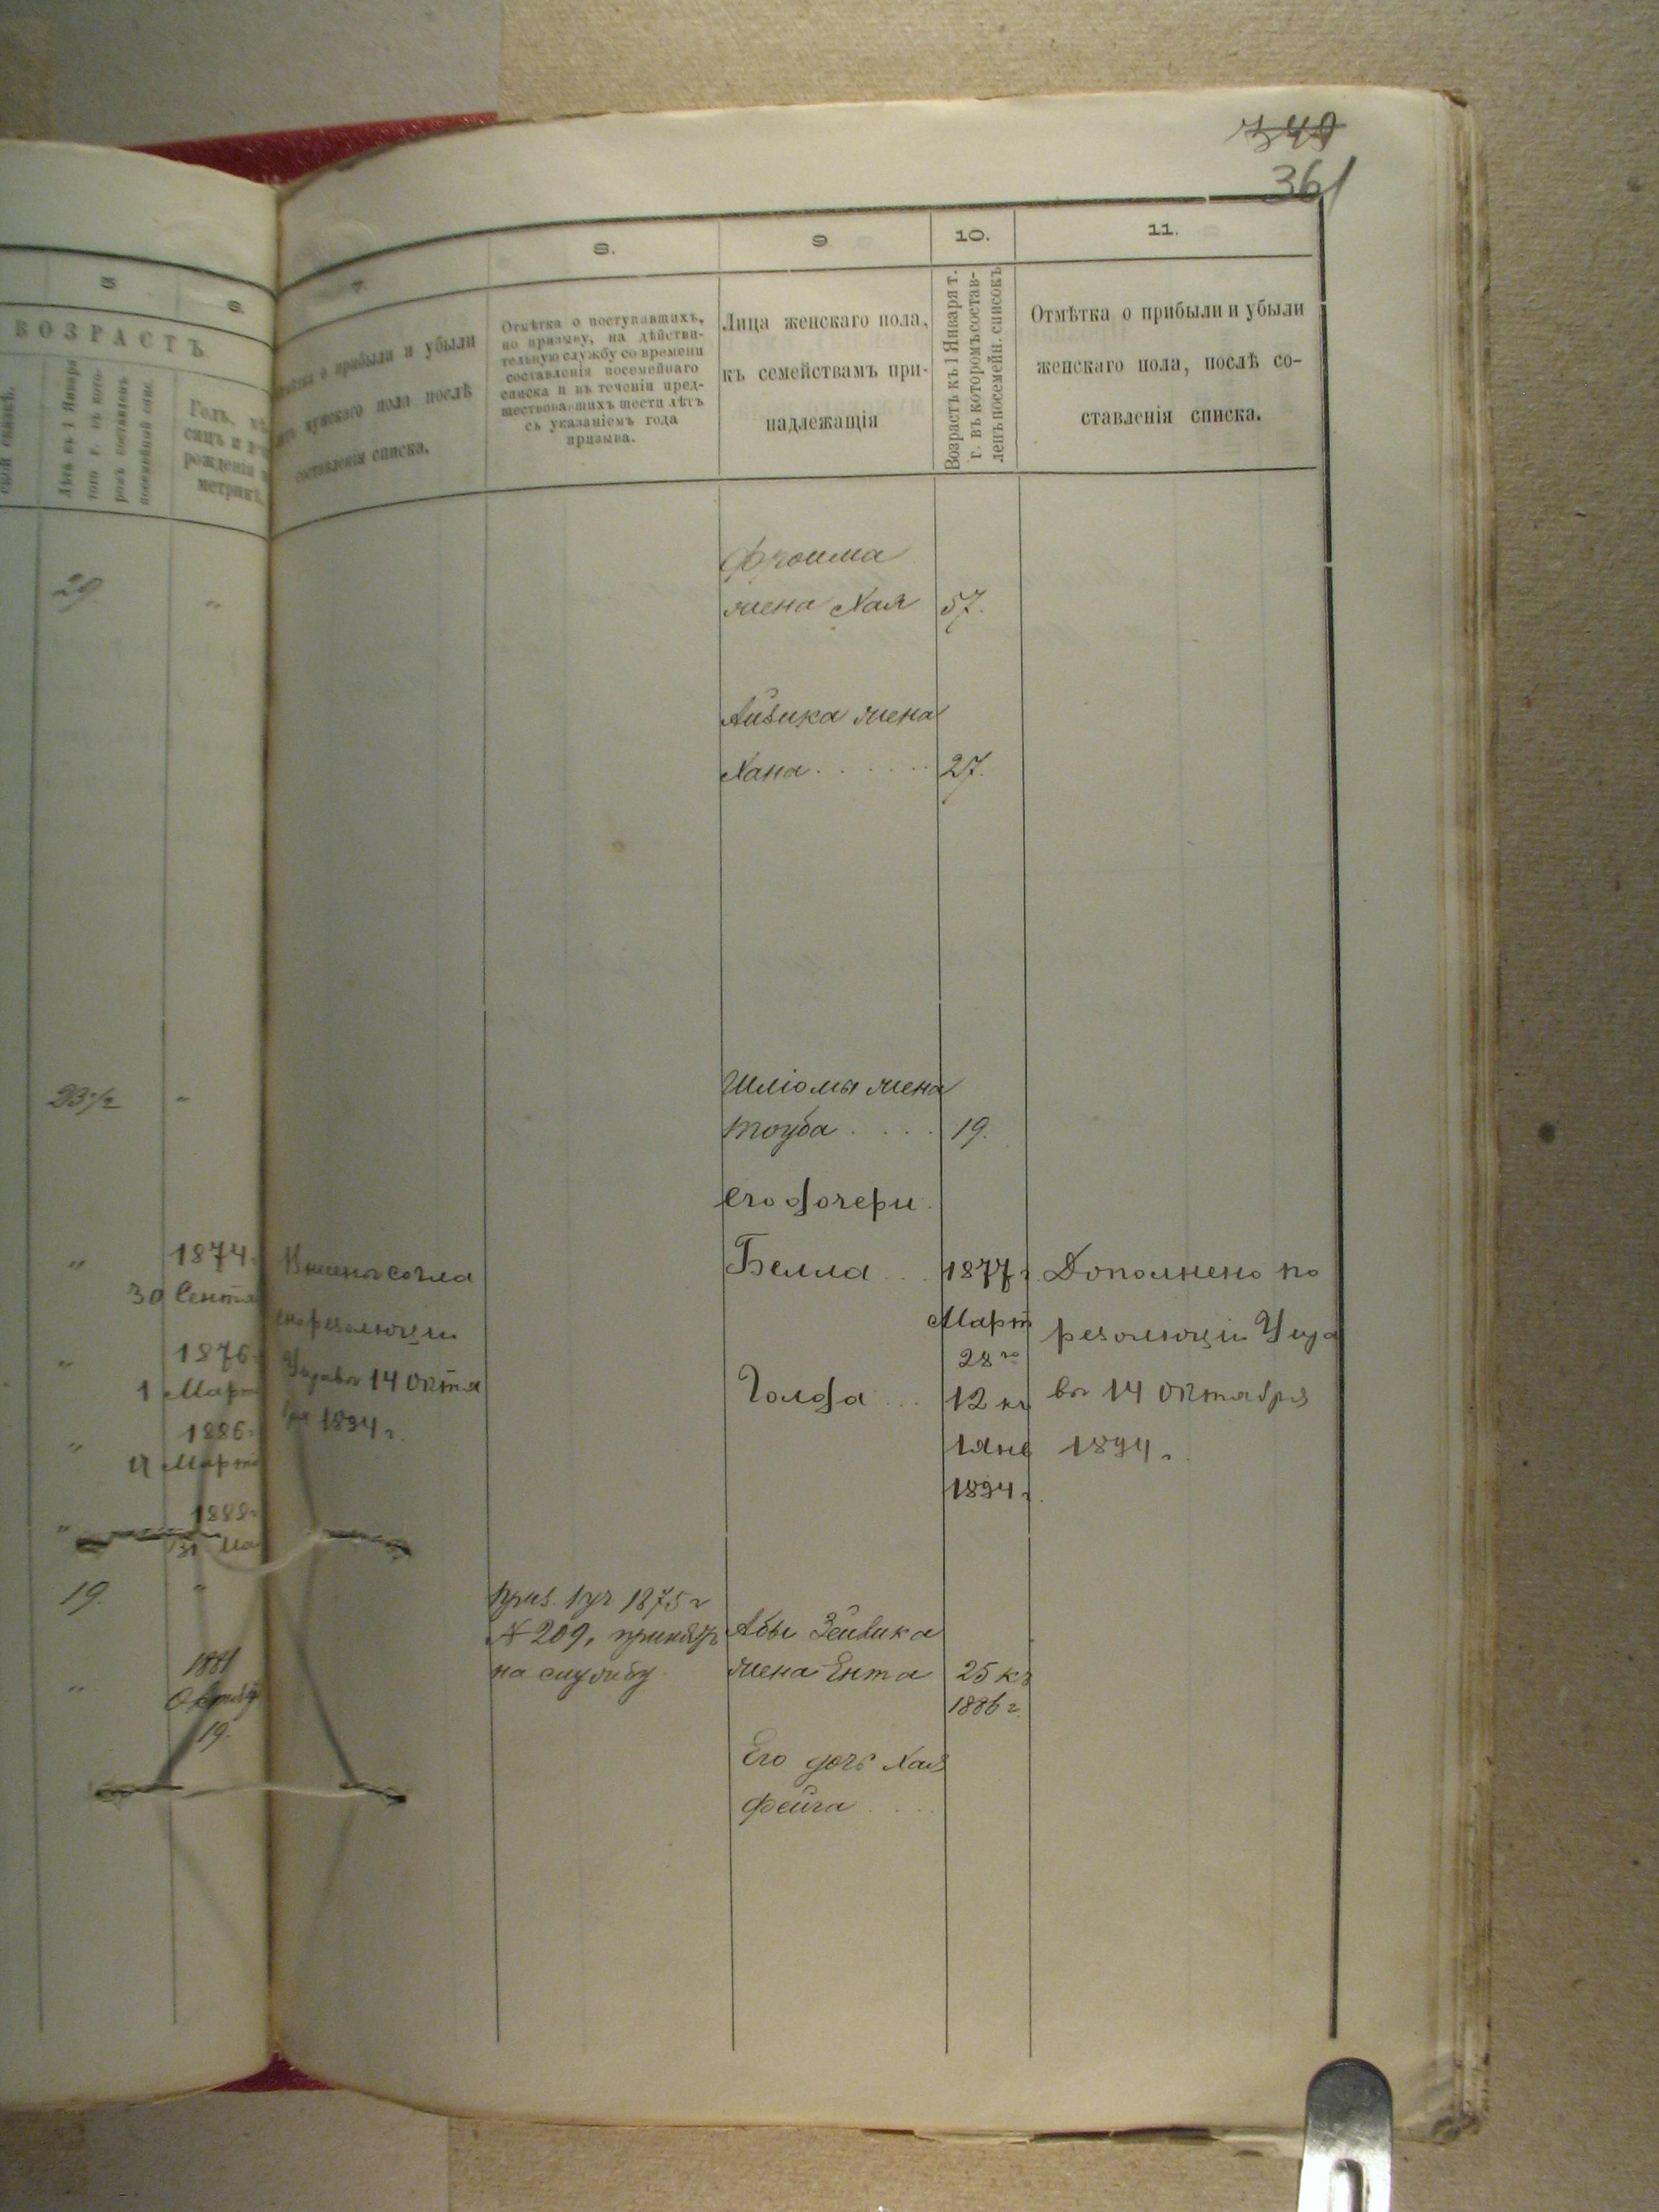 349
361
5
6.
7.
8.
9
10.
11.
ВОЗРАСТЪ
Лѣтъ къ 1 Января
того г. въ кото-
ромъ составленъ
посемейный спис.
Годъ, мѣ
сяцъ и
рожденія
метрикѣ.
о прибыли и убыли
мужскаго пола послѣ
составленія списка.
Отмѣтка о поступавшихъ,
по призыву, на дѣйстви-
тельную службу со времени
составленія посемейнаго
списка и въ теченіи пред-
шествовавшихъ шести лѣтъ
съ указаніемъ года
призыва.
Лица женскаго пола,
къ семействамъ при-
надлежащія
Возрастъ къ 1 Января т.
г. въ которомъ состав-
ленъ посемейн. списокъ
Отмѣтка о прибыли и убыли
женскаго пола, послѣ со-
ставленія списка.
29. "
Фроима
жена Хая 57.
Айзика жена
Хана . . . . . . 27.
23 1/2 "
Шліомы жена
Тоуба . . . . 19.
его дочери.
" 1874.
30 Сентя
" 1876
1 Март
" 1886
4 Март
" 1888
31 Ма
19. "
" 1881
Октября
19.
согла
резолюціи
14 Октя
1894 г.
Белла . . . 1877 г. Дополнено по
Март резолюціи Упра
28 го
Голда . . . 12 къ въ 14 Октября
1 Янв 1894 г.
1894 г.
приз. 1 уч 1875 г
№ 209, принятъ
на службу.
Абы Зейвика
жена Ента 25 къ
1886 г.
Его дочь Хая
Фейга . . . .